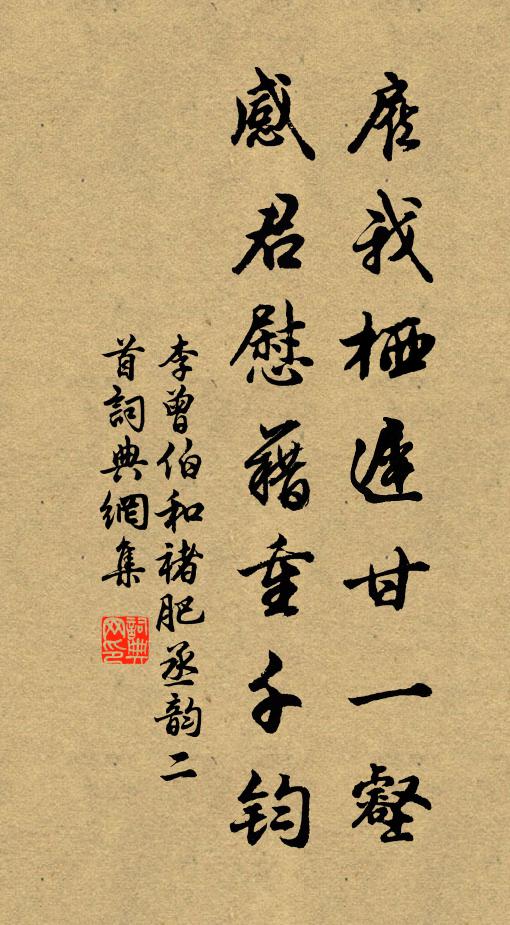 顧我栖遲甘一壑
感君慰藉重千鈞
李曾伯和褚肥丞韵二
首詞典網集
詞典
网印